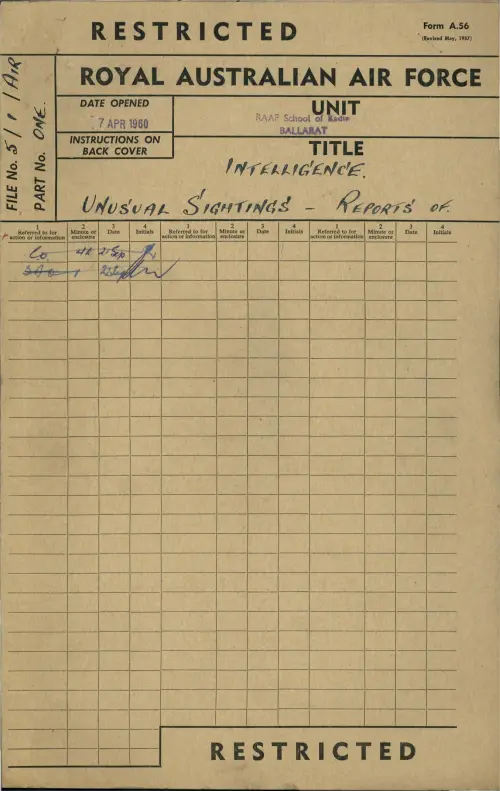 RESTRICTED
Form A.56
(Revised May, 1957)
FILE No. 5/1/AIR
PART No. ONE.
ROYAL AUSTRALIAN AIR FORCE
DATE OPENED
7 APR 1960
INSTRUCTIONS ON
BACK COVER
UNIT
RAAF School of Radio
BALLARAT
TITLE
INTELLIGENCE.
UNUSUAL SIGHTINGS - REPORTS OF.
1 2 3 4 1 2 3 4 1 2 3 4
Referred to for Minute or Date Initials Referred to for Minute or Date Initials Referred to for Minute or Date Initials
action or information enclosure action or information enclosure action or information enclosure
Co. 21 Sep
RESTRICTED